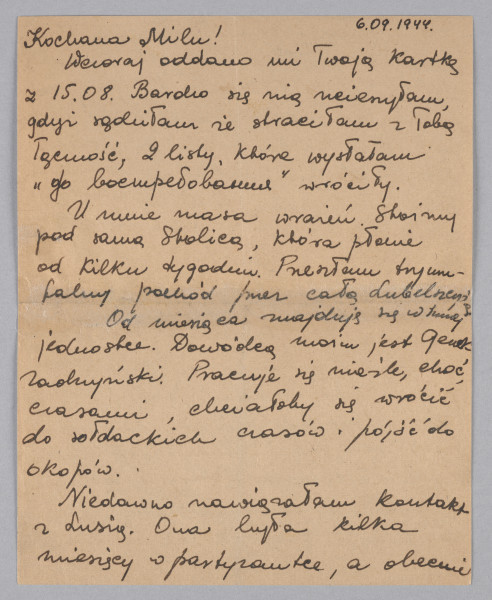 6.09.1944.
Kochana Milu!
Wczoraj oddano mi Twoją kartkę
z 15.08. Bardzo się nią ucieszyłam,
gdyż sądziłam że straciłam z Tobą
łączność, 2 listy, które wysłałam
„do востребования" wróciły.
U mnie masa wrażeń. Stoimy
pod samą Stolicą, która płonie
od kilku tygodni. Przeszłam tryum-
falny pochód przez całą Lubelszczyznę
Od miesiąca znajduję się w innej
jednostce. Dowódcą moim jest Genek
Pracuje się nieźle, choć
czasami, chciałoby się wrócić
do sołdackich czasów i pójść do
okopów.
Niedawno nawiązałam kontakt
z Lusią. Ona była kilka
miesięcy w partyzantce, a obecnie